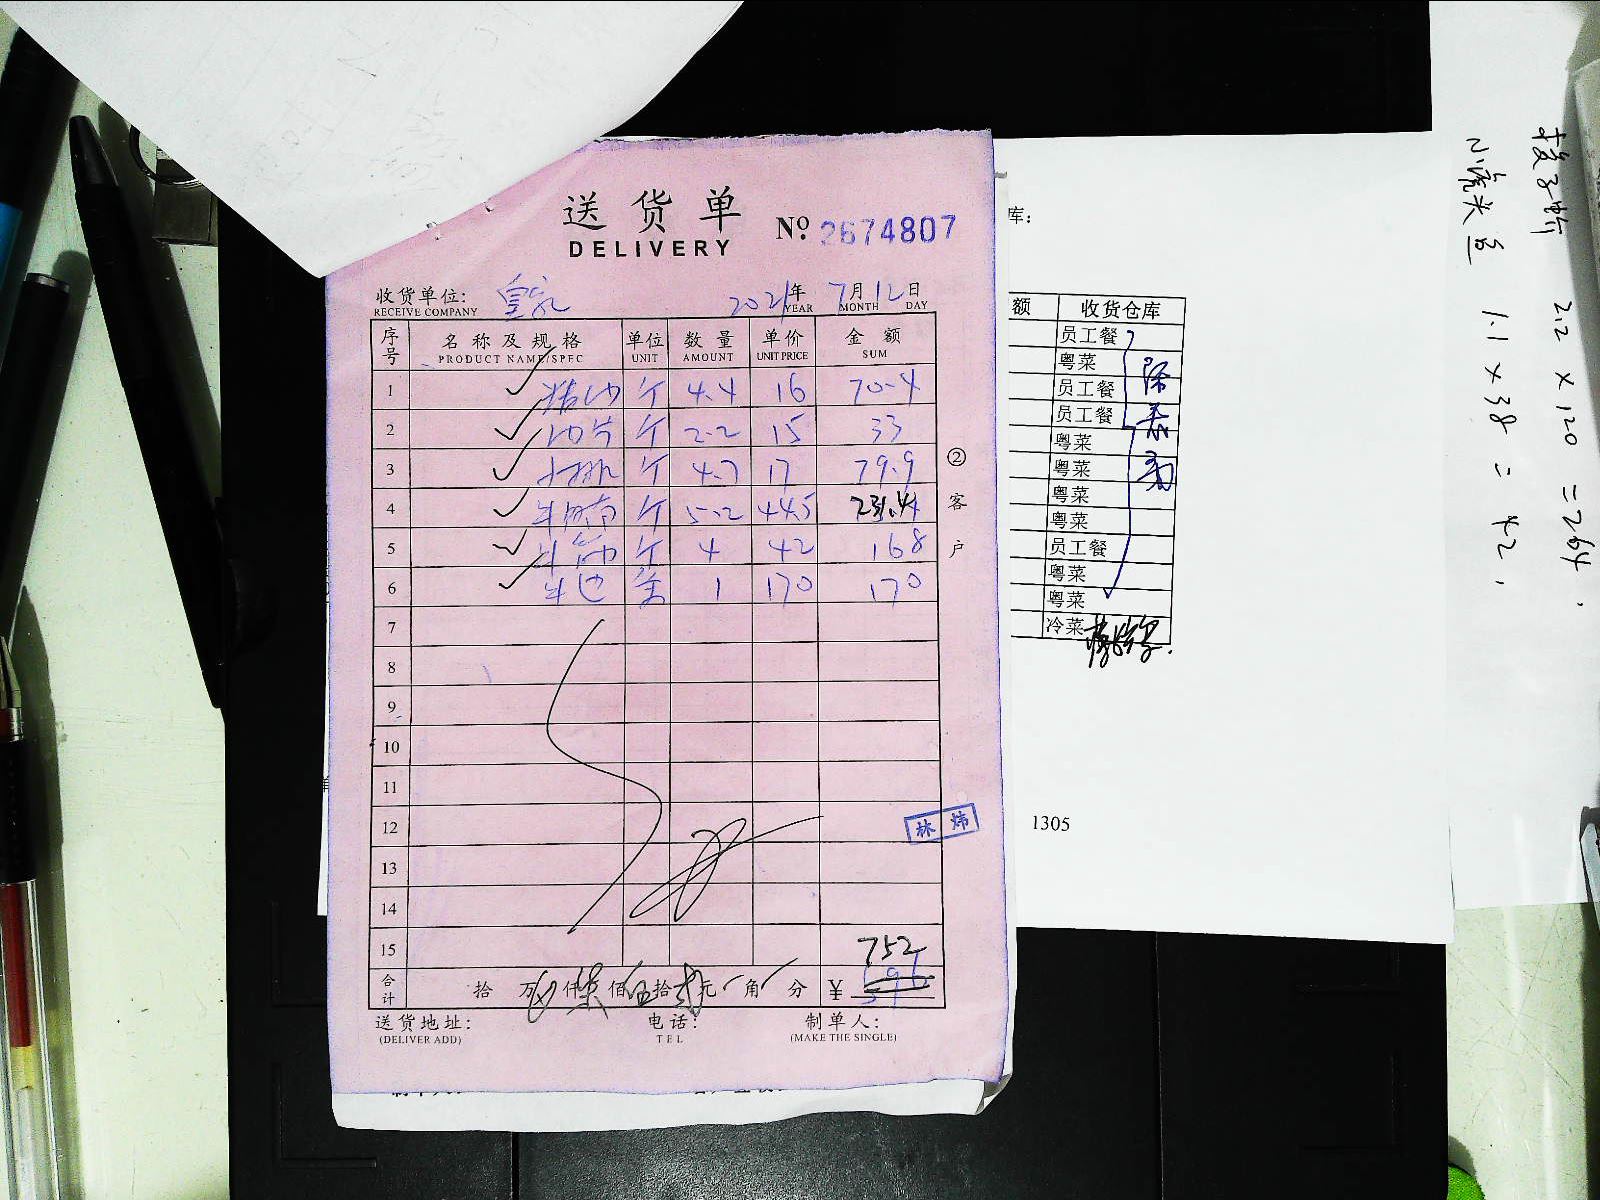 送货单
DELIVERY
№ 2674807
收货单位: 皇家 2021年 7月12日
RECEIVE COMPANY YEAR MONTH DAY
序号 名称及规格 单位 数量 单价 金额
PRODUCT NAME/SPEC UNIT AMOUNT UNIT PRICE SUM
1 斤 4.4 16 70.4
2 切片 斤 2.2 15 33
3 斤 4.7 17 79.9
4 牛腩 斤 5.2 44.5 231.4
5 牛 斤 4 42 168
6 牛 1 170 170
7
8
9
10
11
12
13
14
15 752
合计 拾 万 仟 柒 佰 伍 拾 贰 元 角 分 ¥ 596
送货地址: 电话: 制单人:
(DELIVER ADD) TEL (MAKE THE SINGLE)
② 客户
林炜
库:
额 收货仓库
员工餐
粤菜
员工餐
员工餐
粤菜
粤菜
粤菜
粤菜
员工餐
粤菜
粤菜
冷菜
1305
2.2 × 120 = 264
1.1 × 38 = 42